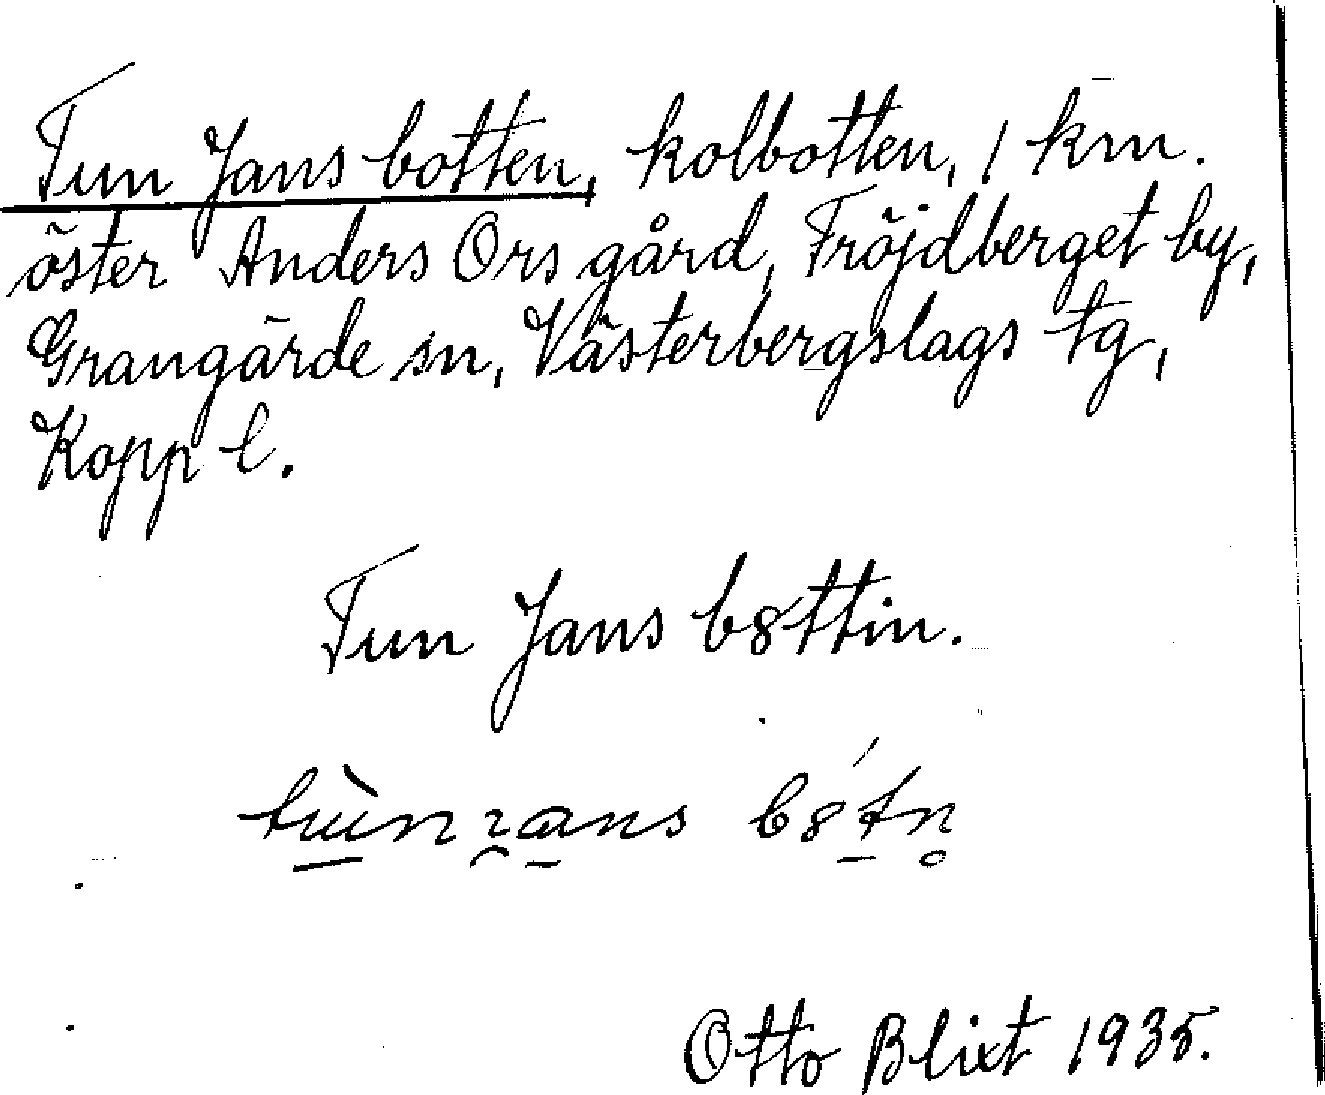 Tun Jans botten, kolbotten, 1 km.
öster Anders Ors gård, Fröjdberget by,
Grangärde sn, Västerbergslags tg,
Kopp l.
Tun Jans b8ttin.
Otto Blixt 1935.